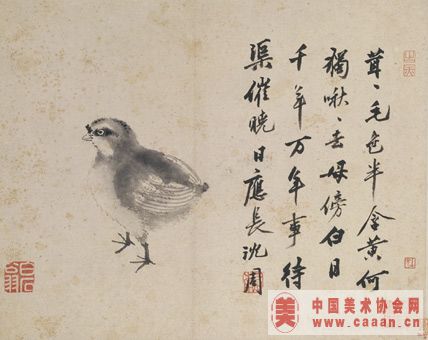 茸〻毛色半含黄何
獨啾〻去母傍白日
千年万年事待
渠催曉日應長沈周
美
中国美术协会网
www.caaan.cn